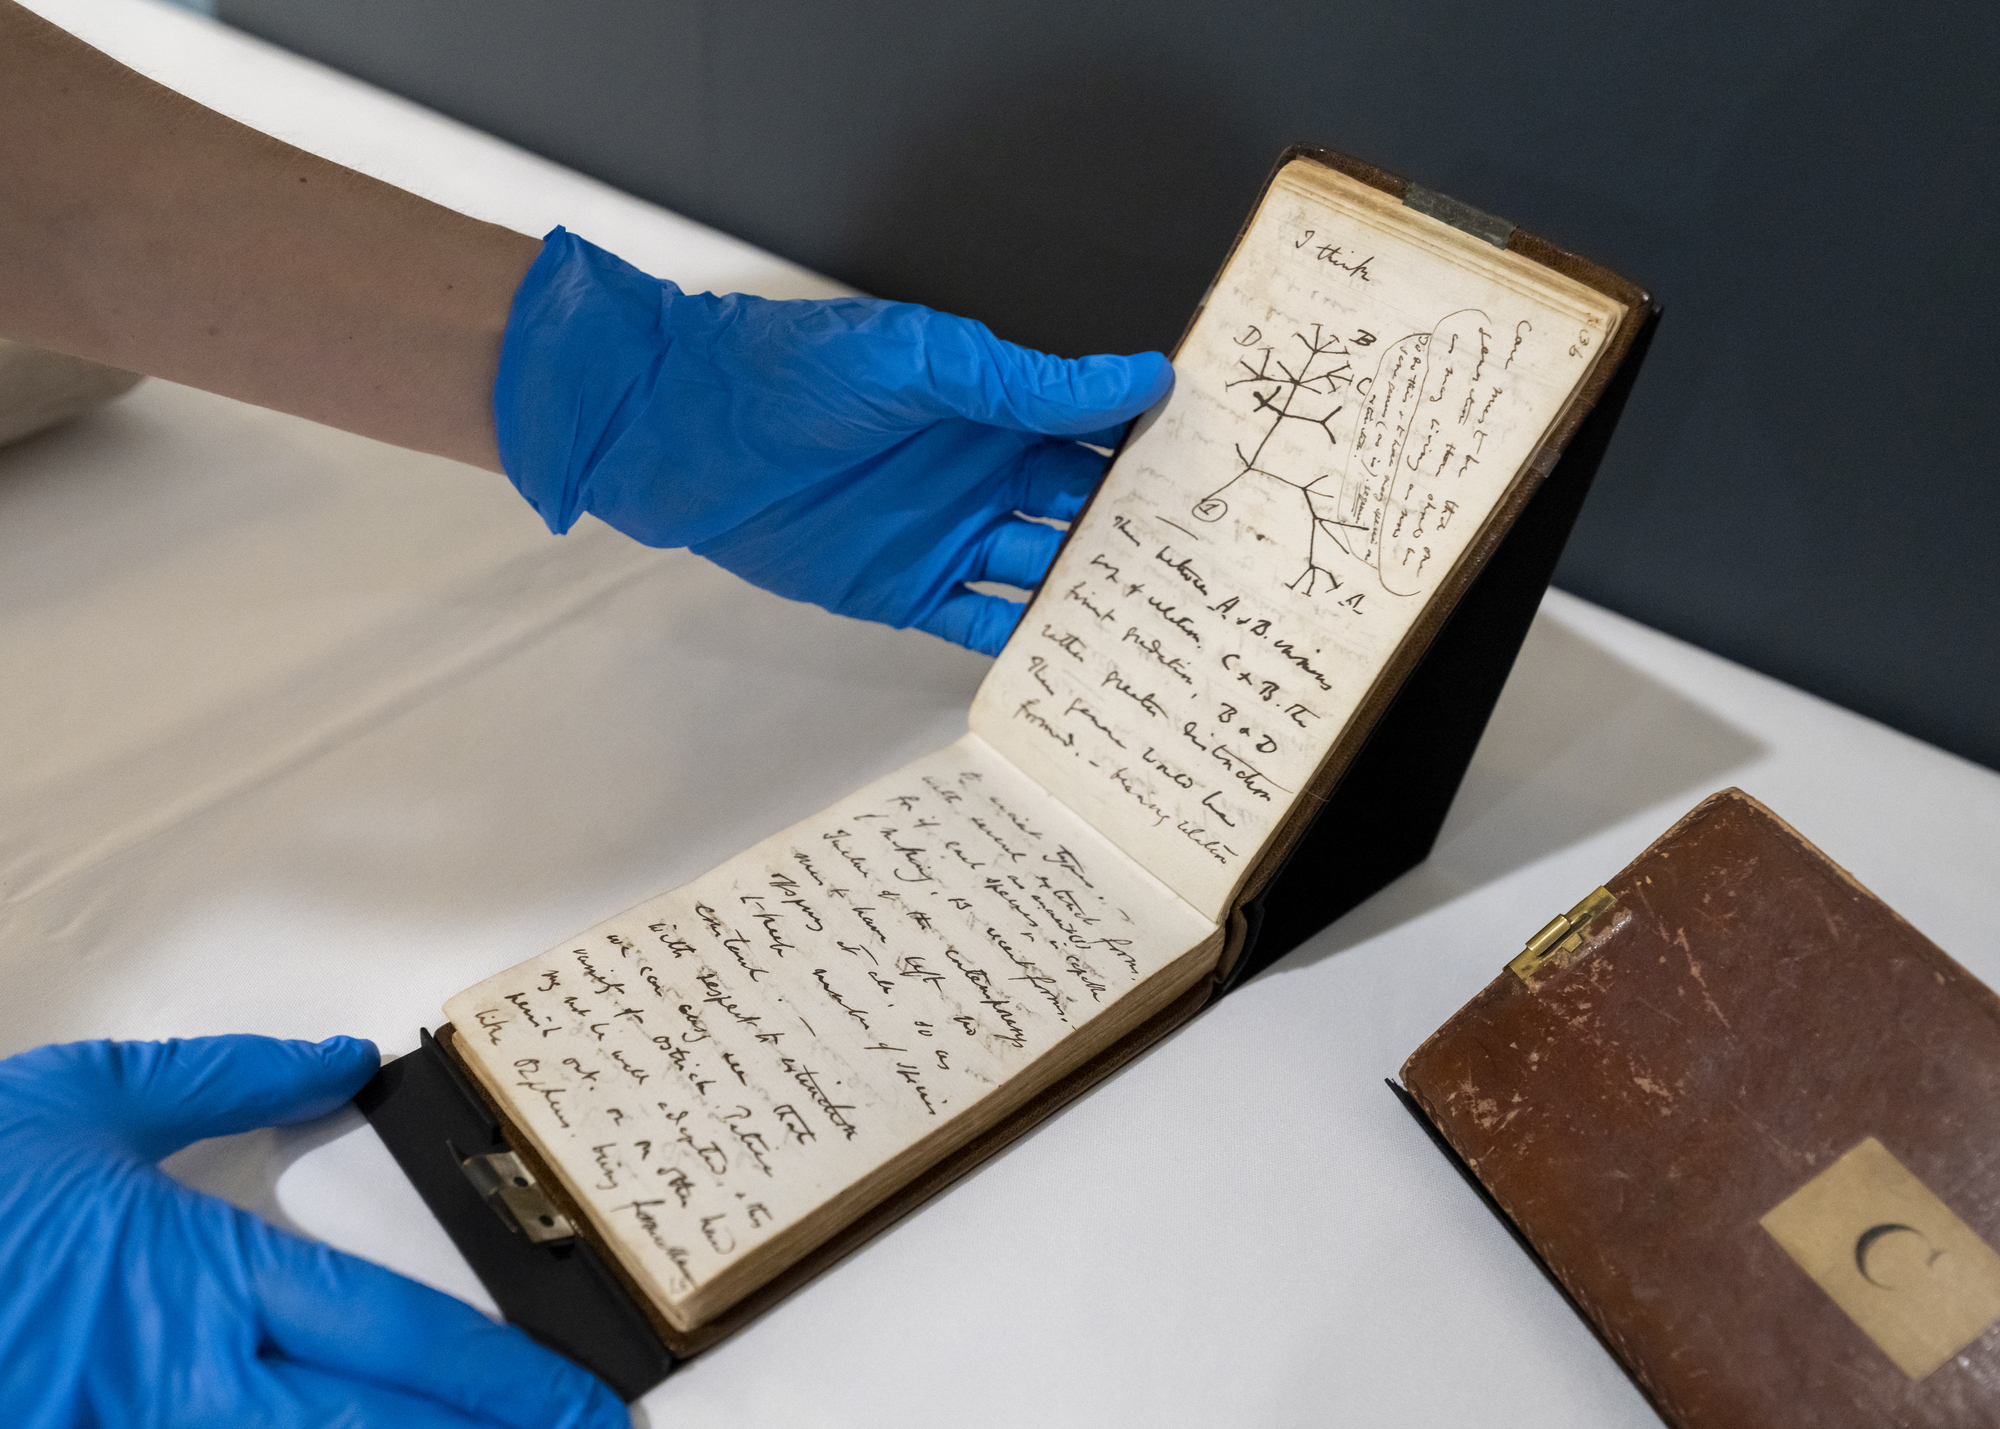 36
I think
Case must be that
one generation then should be
as many living as now
To do this & to have many species in
same genus (as is), requires
extinction.
D
B
C
A.
1
Thus between A. & B. immens
gap of relation. C & B. the
finest gradation, B & D
rather greater distinction
Thus genera would be
formed. — bearing relation
to ancient types. —
with several extinct forms,
for if each species an ancient (1) is capable
of making, 13 recent forms. —
Twelve of the contemporarys
must have left no
offspring at all, so as
to keep number of species
constant. —
With respect to extinction
we can easy see that
variety of ostrich, Petise
may not be well adapted, & thus
perish out, or on other hand
like Orpheus. being favourable
C